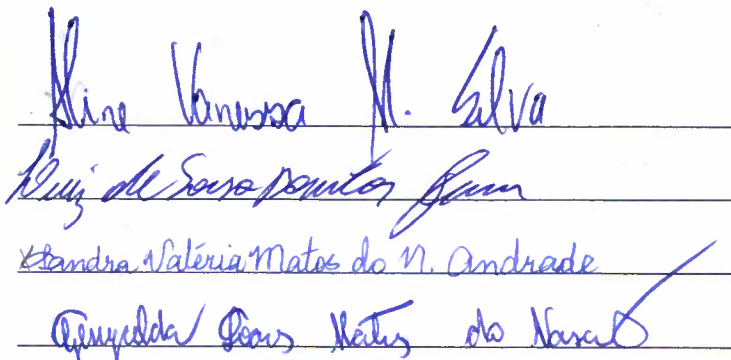 Aline Vanessa M. Silva
Luiz de Sousa Santos
Sandra Valéria Matos do N. Andrade
Matos do